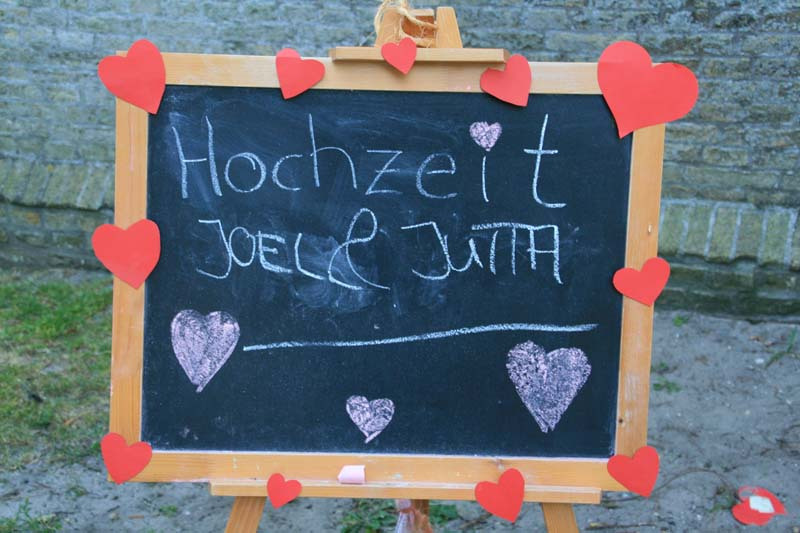 Hochzeit
JOEL & JUTTA